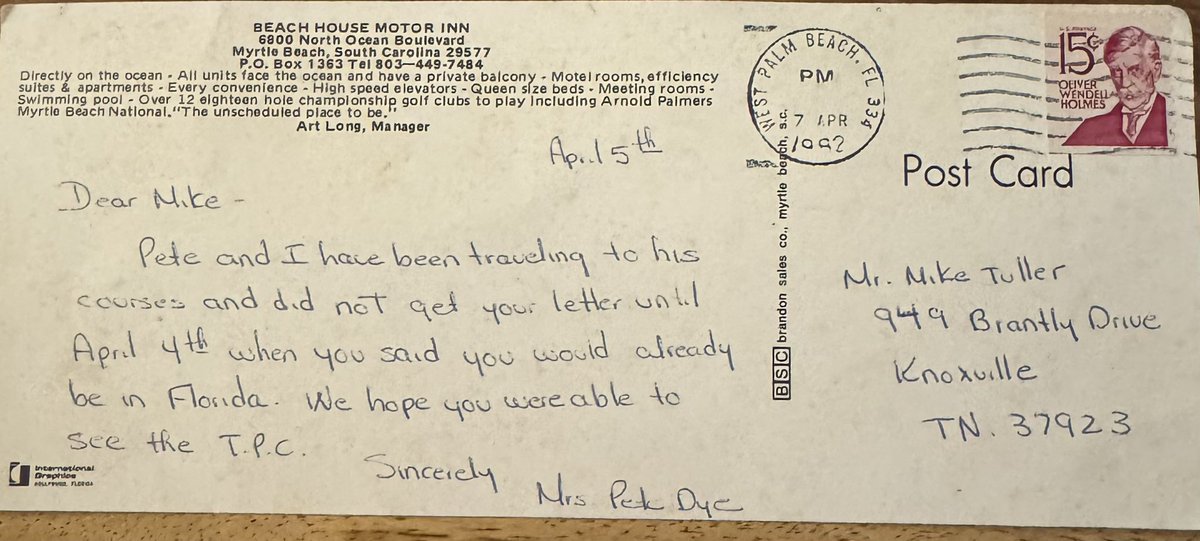 BEACH HOUSE MOTOR INN
6800 North Ocean Boulevard
Myrtle Beach, South Carolina 29577
P.O. Box 1363 Tel 803—449-7484
Directly on the ocean - All units face the ocean and have a private balcony - Motel rooms, efficiency
suites & apartments - Every convenience - High speed elevators - Queen size beds - Meeting rooms -
Swimming pool - Over 12 eighteen hole championship golf clubs to play including Arnold Palmers
Myrtle Beach National. "The unscheduled place to be."
Art Long, Manager
April 5th
Dear Mike -
Pete and I have been traveling to his
courses and did not get your letter until
April 4th when you said you would already
be in Florida. We hope you were able to
see the T.P.C.
Sincerely
Mrs Pete Dye
International
Graphics
FLORIDA
BSC brandon sales co., myrtle beach, s.c.
WEST PALM BEACH, FL 334
PM
7 APR
1992
U.S. POSTAGE
15¢
OLIVER
WENDELL
HOLMES
Post Card
Mr. Mike Tuller
949 Brantly Drive
Knoxville
TN. 37923